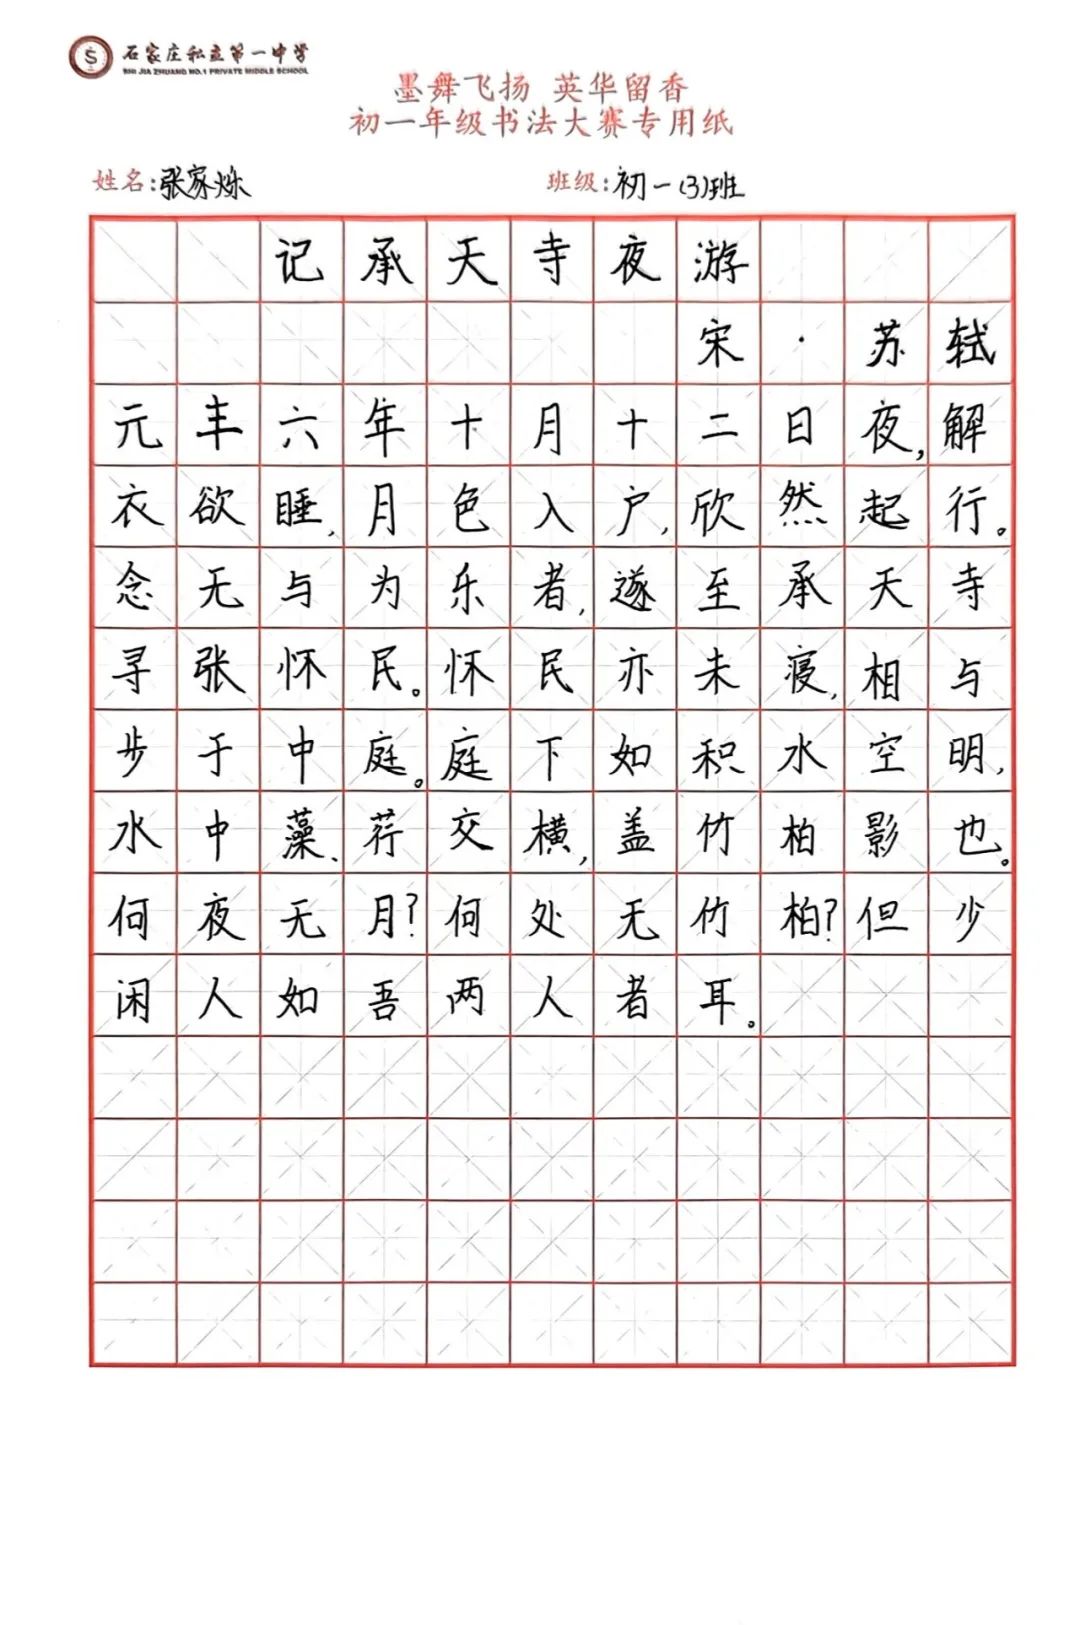 石家庄私立第一中学
SHI JIA ZHUANG NO.1 PRIVATE MIDDLE SCHOOL
墨舞飞扬 英华留香
初一年级书法大赛专用纸
姓名:张家烁 班级:初一(3)班
记承天寺夜游
宋·苏轼
元丰六年十月十二日夜,解
衣欲睡,月色入户,欣然起行。
念无与为乐者,遂至承天寺
寻张怀民。怀民亦未寝,相与
步于中庭。庭下如积水空明,
水中藻、荇交横,盖竹柏影也。
何夜无月?何处无竹柏?但少
闲人如吾两人者耳。